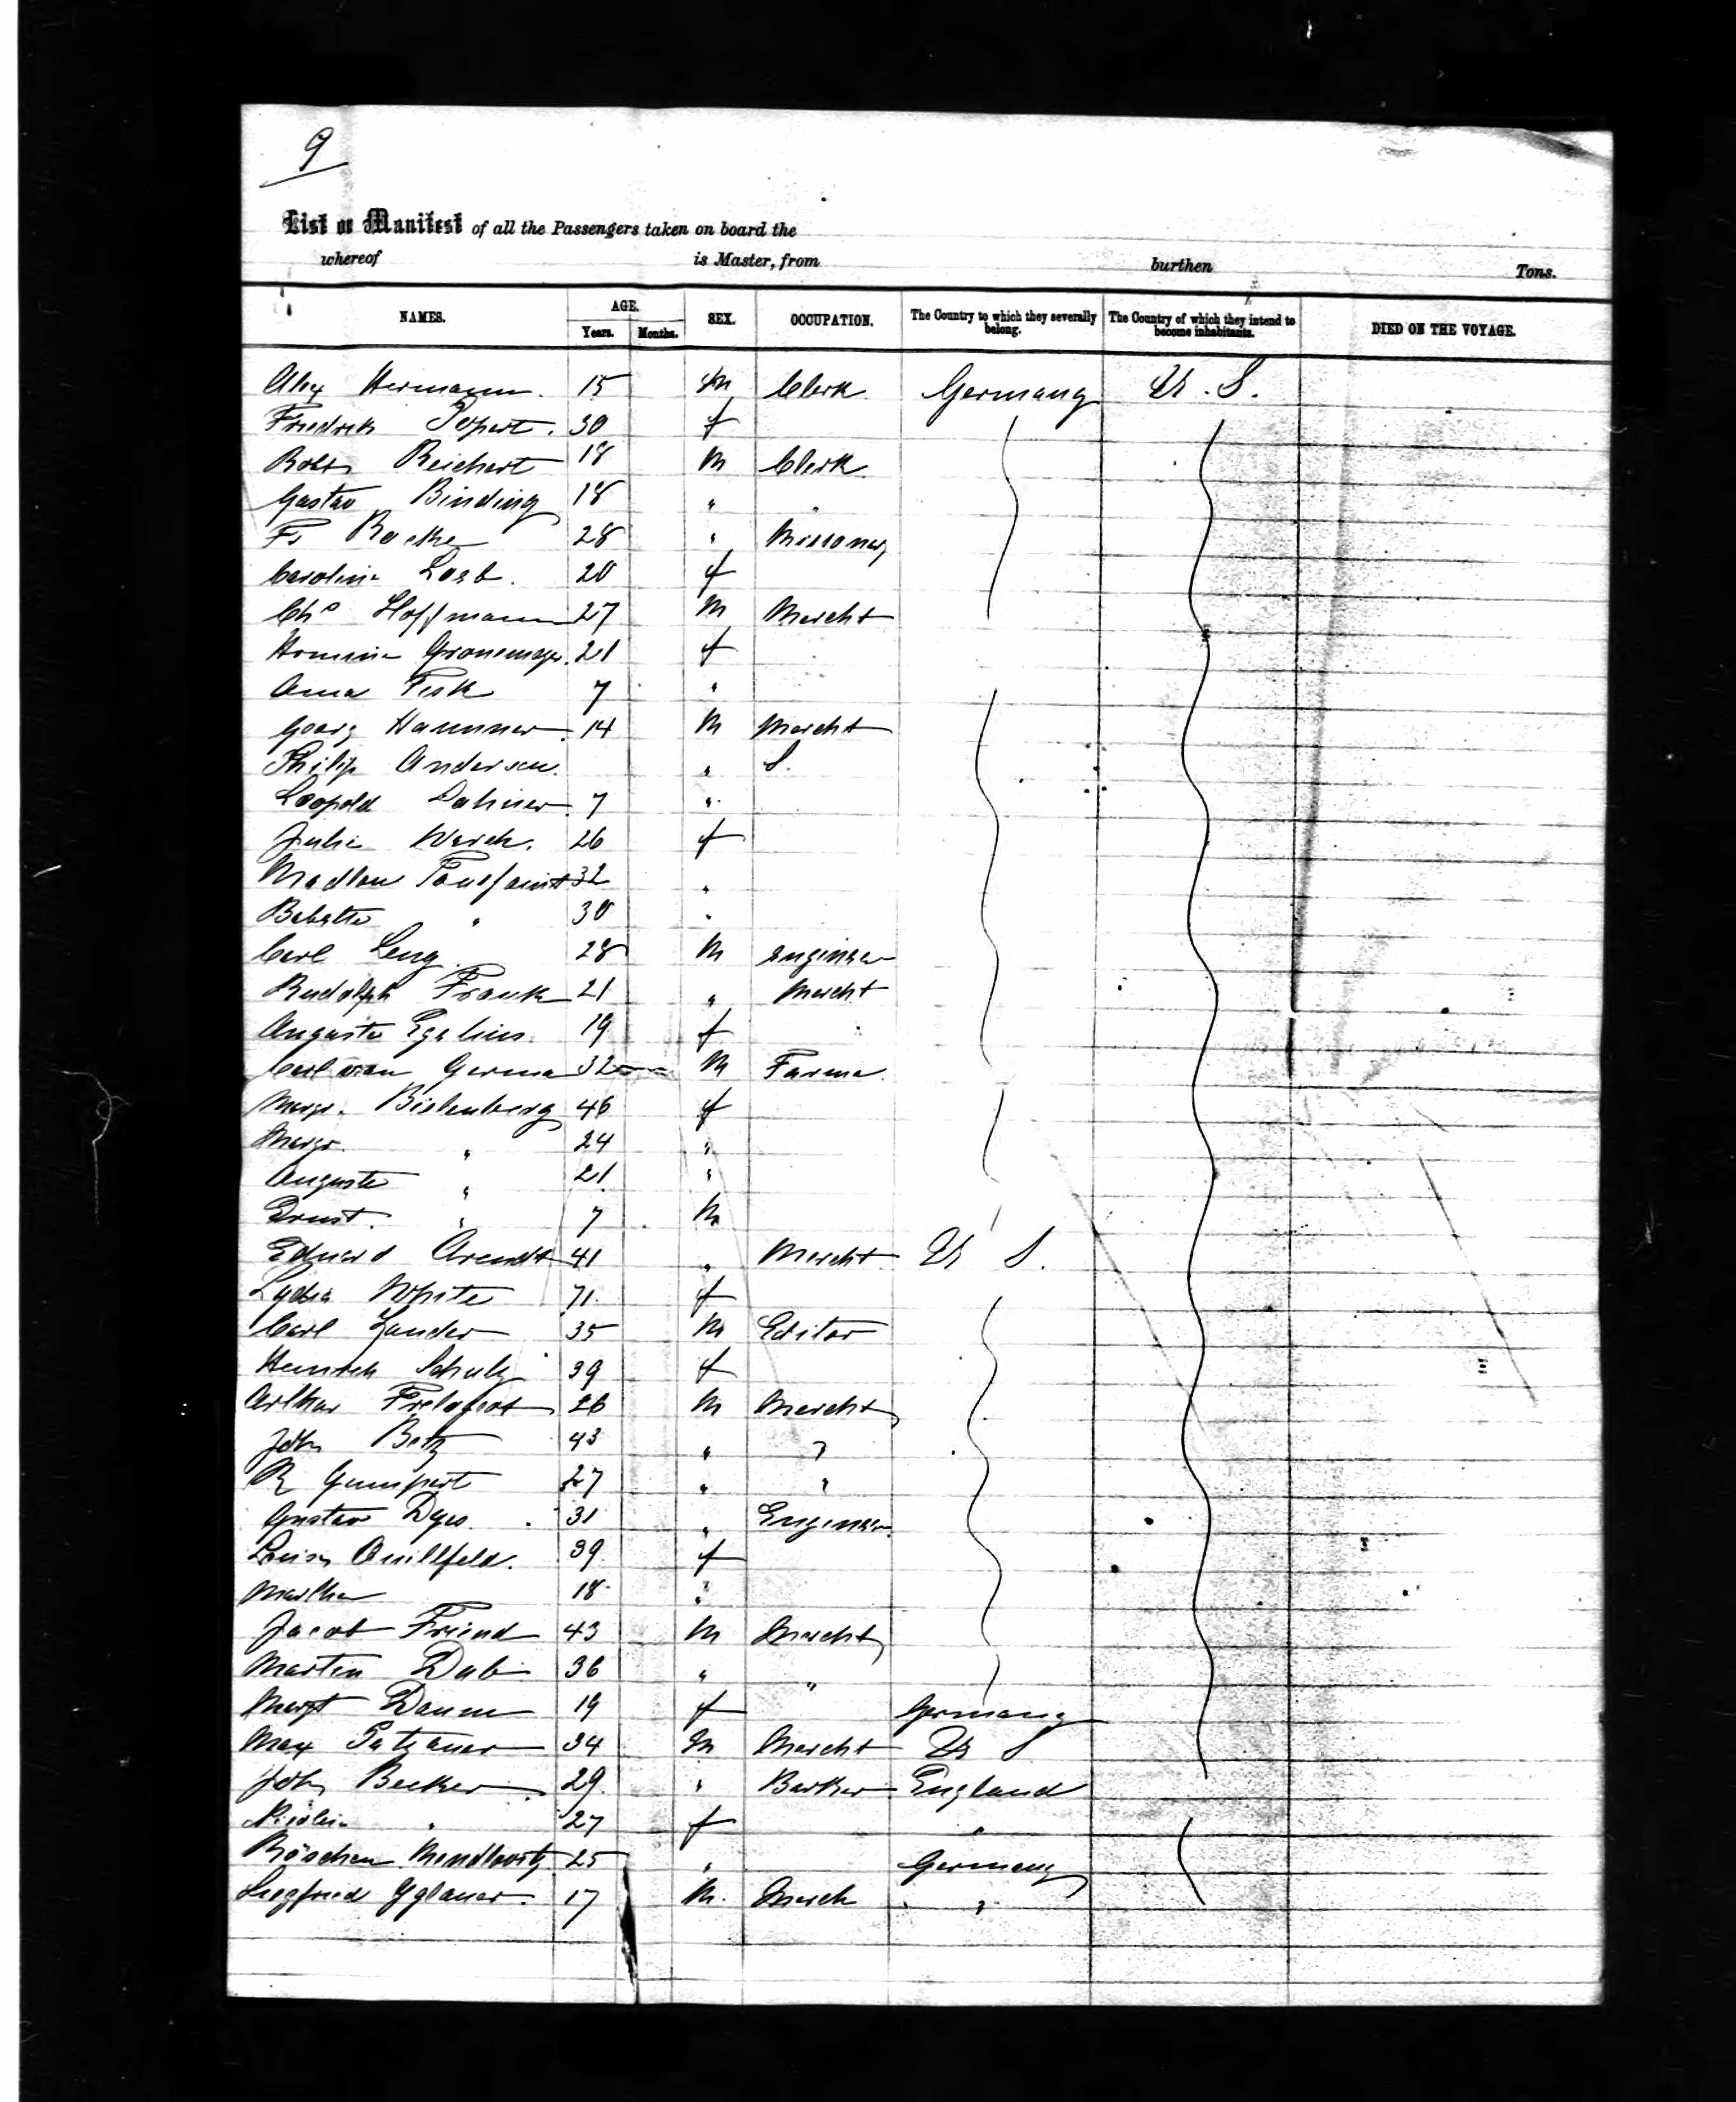 9
List or Manifest of all the Passengers taken on board the
whereof is Master, from burthen Tons.
NAMES. AGE. Years. Months. SEX. OCCUPATION. The Country to which they severally belong. The Country of which they intend to become inhabitants. DIED ON THE VOYAGE.
Alex Hermann. 15 M Clerk Germany U. S.
Friedrich 30 f
Robt Reichert 18 M Clerk
Gustav Binding 18 " "
Fr 28 "
Caroline Loeb. 20 f
Chs Hoffmann 27 M Mercht
21 f
Anna 7 "
Georg 14 M Mercht
Philip Andersen. " S.
Leopold 7 "
Julie 26 f
32 "
Babette " 30 "
Carl Leng. 28 M Engineer
Rudolph Frank 21 " Mercht
Auguste 19 f
Carl von 32 M Farmer
Margr. 46 f
Margr. " 24 "
Auguste " 21 "
Ernst. " 7 M
Eduard Arendt 41 " Mercht U S.
Lydia White 71 f
Carl Zander 35 M Editor
Heinrich Schulz 39 f
Arthur 26 M Mercht
John Betz 43 " "
R Gumpert 27 " "
Gustav 31 " Engineer
Louise Quillfeld. 39 f
Martha 18 "
Jacob Friend 43 M Mercht
Martin 36 " "
Margt Daum 19 f Germany
Max 34 M Mercht U S
John Becker 29 " England
" 27 f "
Röschen Mendlovitz 25 " Germany
Siegfried 17 M. Merch " "